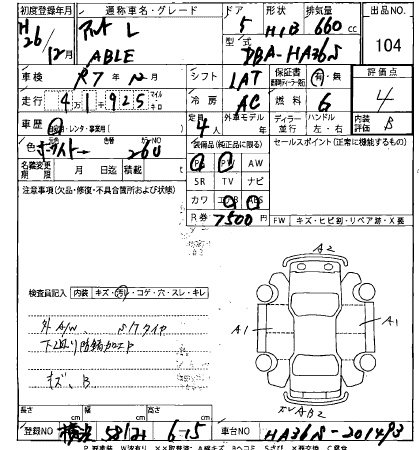 初度登録年月 通称車名・グレード ドア 形状 排気量 出品NO
H26/12月 アルト L 5 H/B 660cc 104
ABLE 型式 DBA-HA36S
車検 R7年 12月 シフト 1AT 保証書 有・無 評価点
走行 4 1 925 マイル キロ 冷房 AC 燃料 G 4
車歴 自家用・レンタ・事業用 定員 4人 外車モデル 年 ディーラー 並行 ハンドル 左・右 内装評価 B
色 色替 カラNO 26U 装備品(純正品に限る) セールスポイント(正常に機能するもの)
名義変更期限 月 日迄 積載 PS PW AW
注意事項(欠品・修復・不具合箇所および状態) SR TV ナビ
カワ エアB ABS
R券 7500円 FW キズ・ヒビ割・リペア跡・X要
A2
検査員記入 内装 キズ・汚れ・コゲ・穴・スレ・キレ
外A/W、S/Tタイヤ
A1 A1
下廻り防錆加工P
キズ、B
A B2
長さ cm 幅 cm 高さ cm
登録NO 6-15 車台NO HA36S-201493